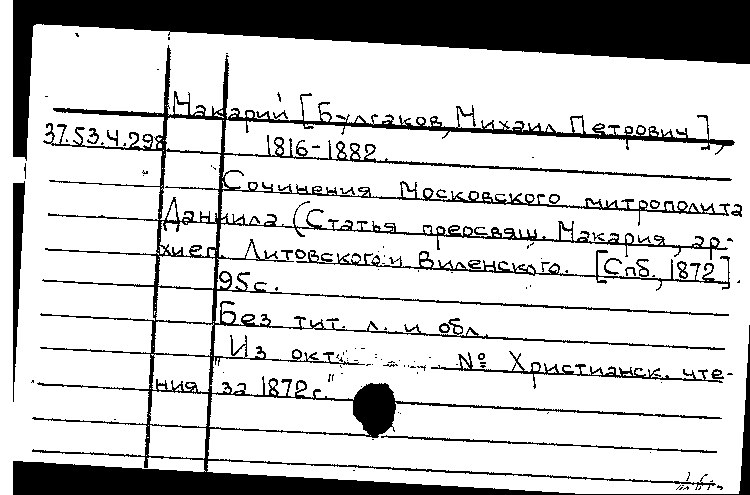 Макарий [Булгаков, Михаил Петрович],
37.53.4.298 1816-1882.
Сочинения Московского митрополита
Даниила. (Статья преосвящ. Макария, ар-
хиеп. Литовского и Виленского. [Спб., 1872].
95с.
Без тит. л. и обл.
"Из окт № Христианск. чте-
ния за 1872г."